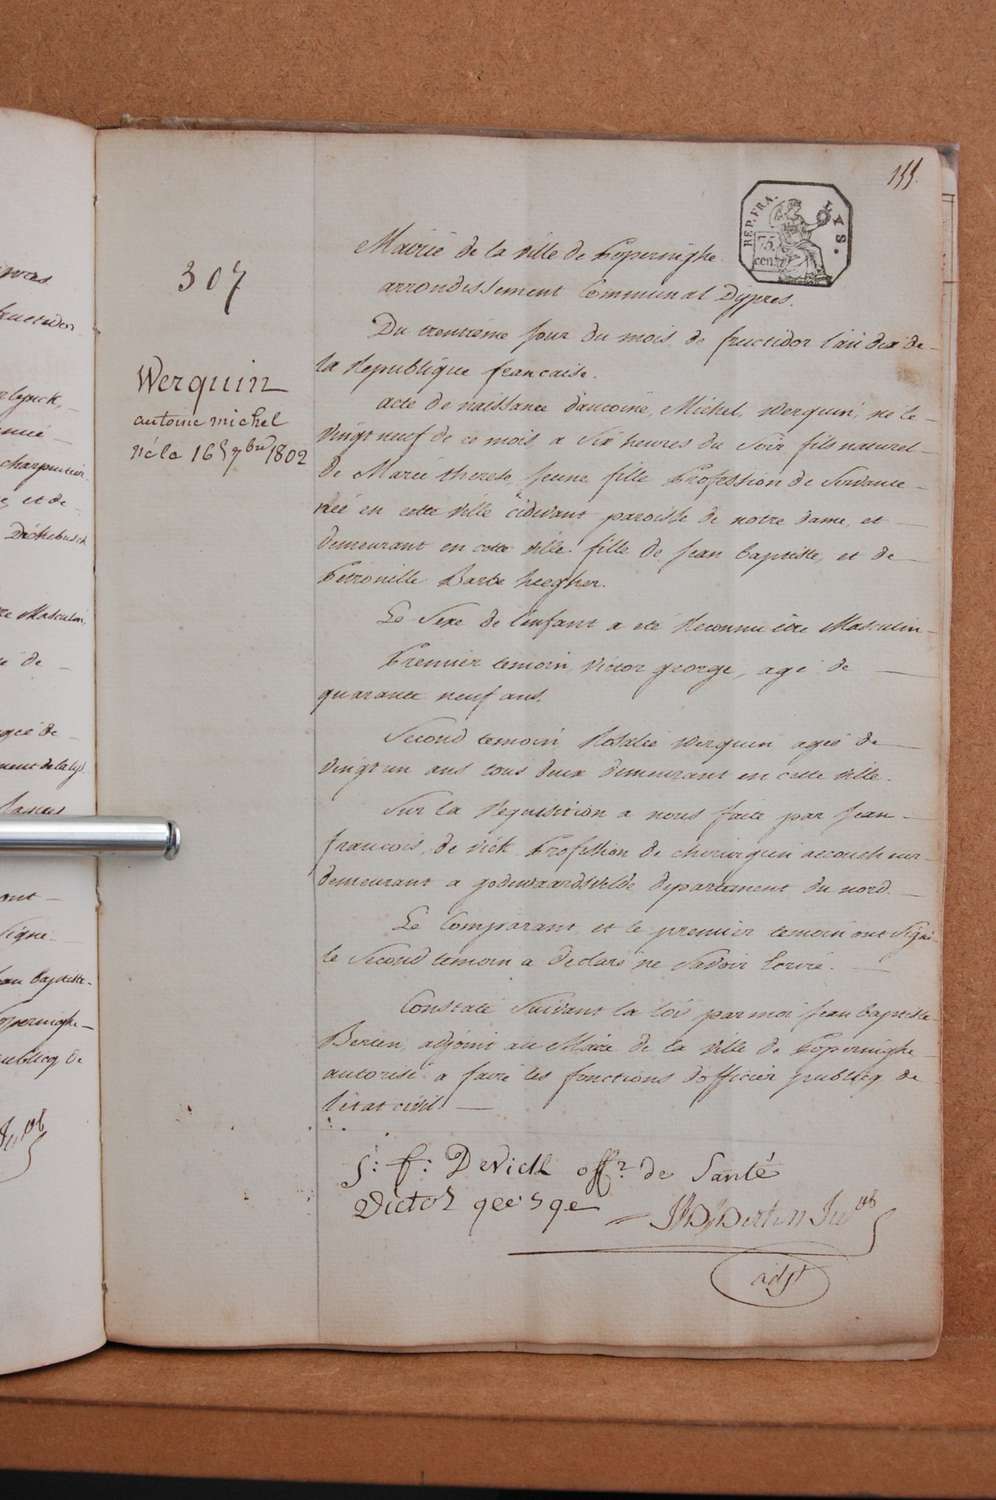 155.
REP. FRA.
LYS.
75
cent.
307
Werquin
antoine michel
né le 16 7bre 1802
Mairie de la ville de Poperinghe
arrondissement Communal Dypres.
Du trentième jour du mois de fructidor l'an dix de
la Republique francaise.
acte de naissance d'antoine, Michel, Werquin, ne le
vingt neuf de ce mois a Six heures du Soir, fils naturel
de Marie therese, jeune fille Profession de Servante
née en cette ville cidevant paroisse de notre dame, et
demeurant en cette ville. fille de jean baptiste, et de
Petronille Barbe heegher.
Le Sexe de l'enfant a été Reconnu être Masculin
Premier temoin, victor george, agé de
quarante neuf ans.
Second temoin Rosalie Werquin ageé de
vingt un ans tous deux demeurant en cette ville.
Sur la Requisition a nous faite par jean
francois, de vick Profession de chirurgien accoucheur
demeurant a godewaersvelde departement du nord.
Le Comparant et le premier temoin ont Signé
le Second temoin a declaré ne Savoir Ecrire.
Constaté Suivant la lois par moi jean baptiste
Berten, adjoint au Maire de la ville de Poperinghe
autorisé a faire les fonctions d'officier publicq de
l'etat civil
J: f: Devick offr. de Santé
Victor george
JB Berten
adjt